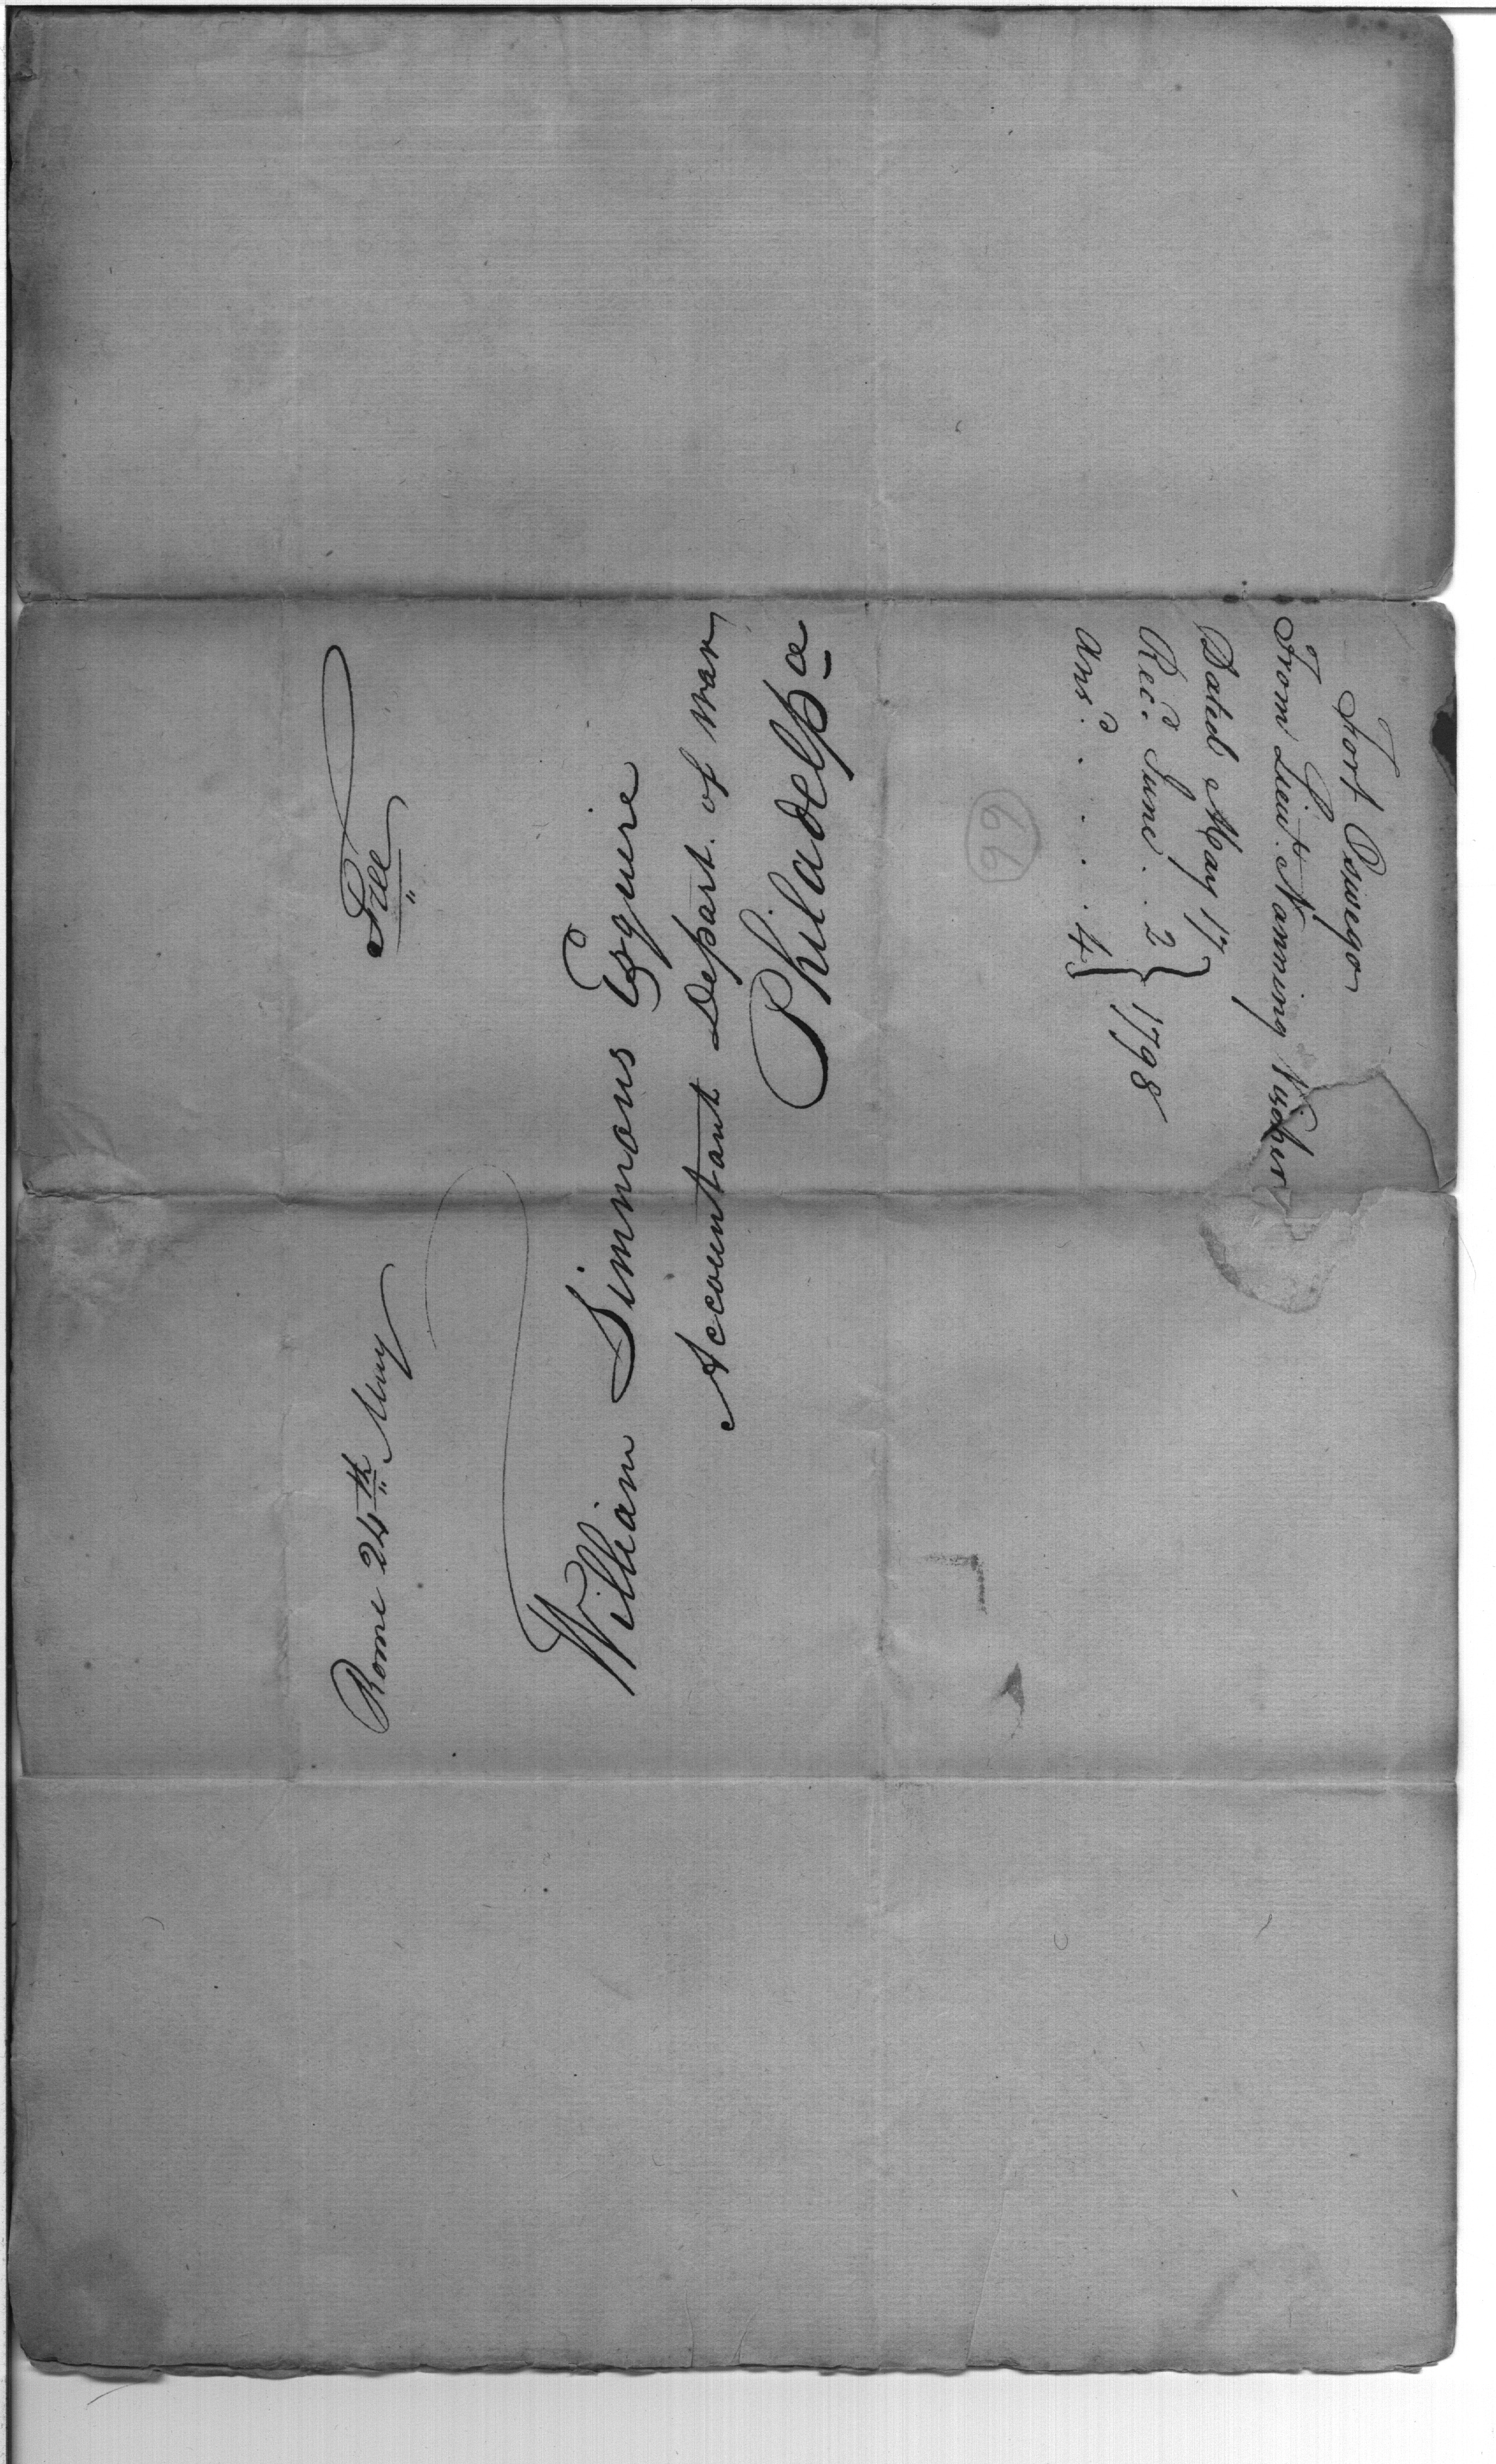 Rome 24th May
Free
William Simmons Esquire
Accountant Depart. of War
Philadelpa
Fort Oswego
From Lieut. Nanning Visscher
Dated May 17
Recd. June . . 2 } 1798
Ansd. . . . . 4
99